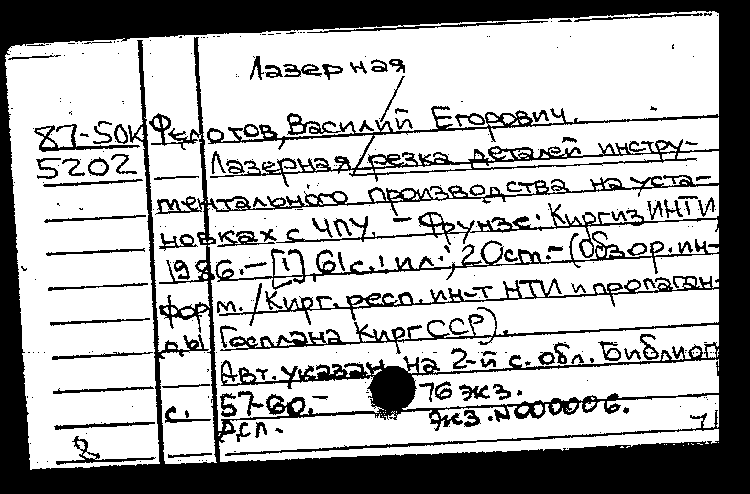 Лазерная
87-50К Федотов, Василий Егорович.
5202 Лазерная резка деталей инстру-
ментального производства на уста-
новках с ЧПУ. - Фрунзе: КиргизИНТИ,
1986. - [1], 61 с.: ил.; 20 cm. - (Обзор. ин-
форм. / Кирг. респ. ин-т НТИ и пропаган-
ды Госплана Кирг ССР).
Авт. указан на 2-й с. обл. Библиогр
с. 57-60. - 76 экз.
Дсп. Экз. N000006.